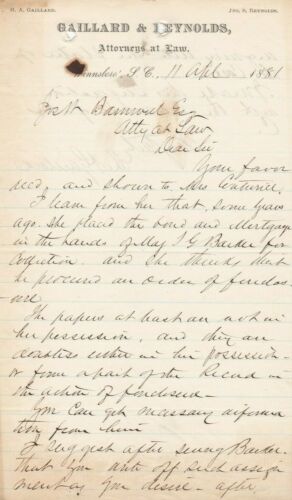 H. A. GAILLARD. JNO. S. REYNOLDS.
GAILLARD & REYNOLDS,
Attorneys at Law.
Winnsboro', S. C., 11 Apl 1881
Jos W Barnwell Esq
Atty at Law
Dear Sir
Your favor
recd, and shown to Mrs
I learn from her that, some years
ago, she placed the bond and mortgage
in the hands of Maj T G Barker for
collection. and she thinks that
he procured an order of foreclos-
ure
The papers at least are not in
her possession, and they are
doubtless either in his possession
or form a part of the Record in
the action of foreclosure
You can get necessary informa
tion from him
I suggest after seeing Barker
that you write off such assign
ment as you desire - after